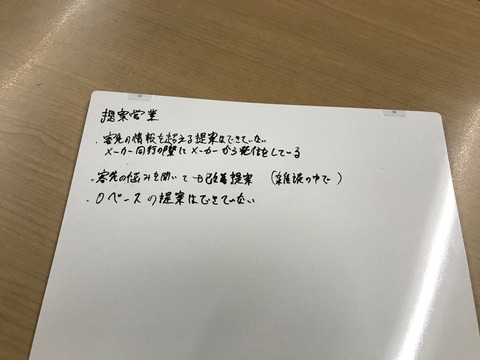 提案営業
・客先の情報を超える提案はできていない
メーカー同行の際にメーカーから発信をしている
・客先の悩みを聞いて 提案 (雑談の中で)
・0ベースの提案はできていない